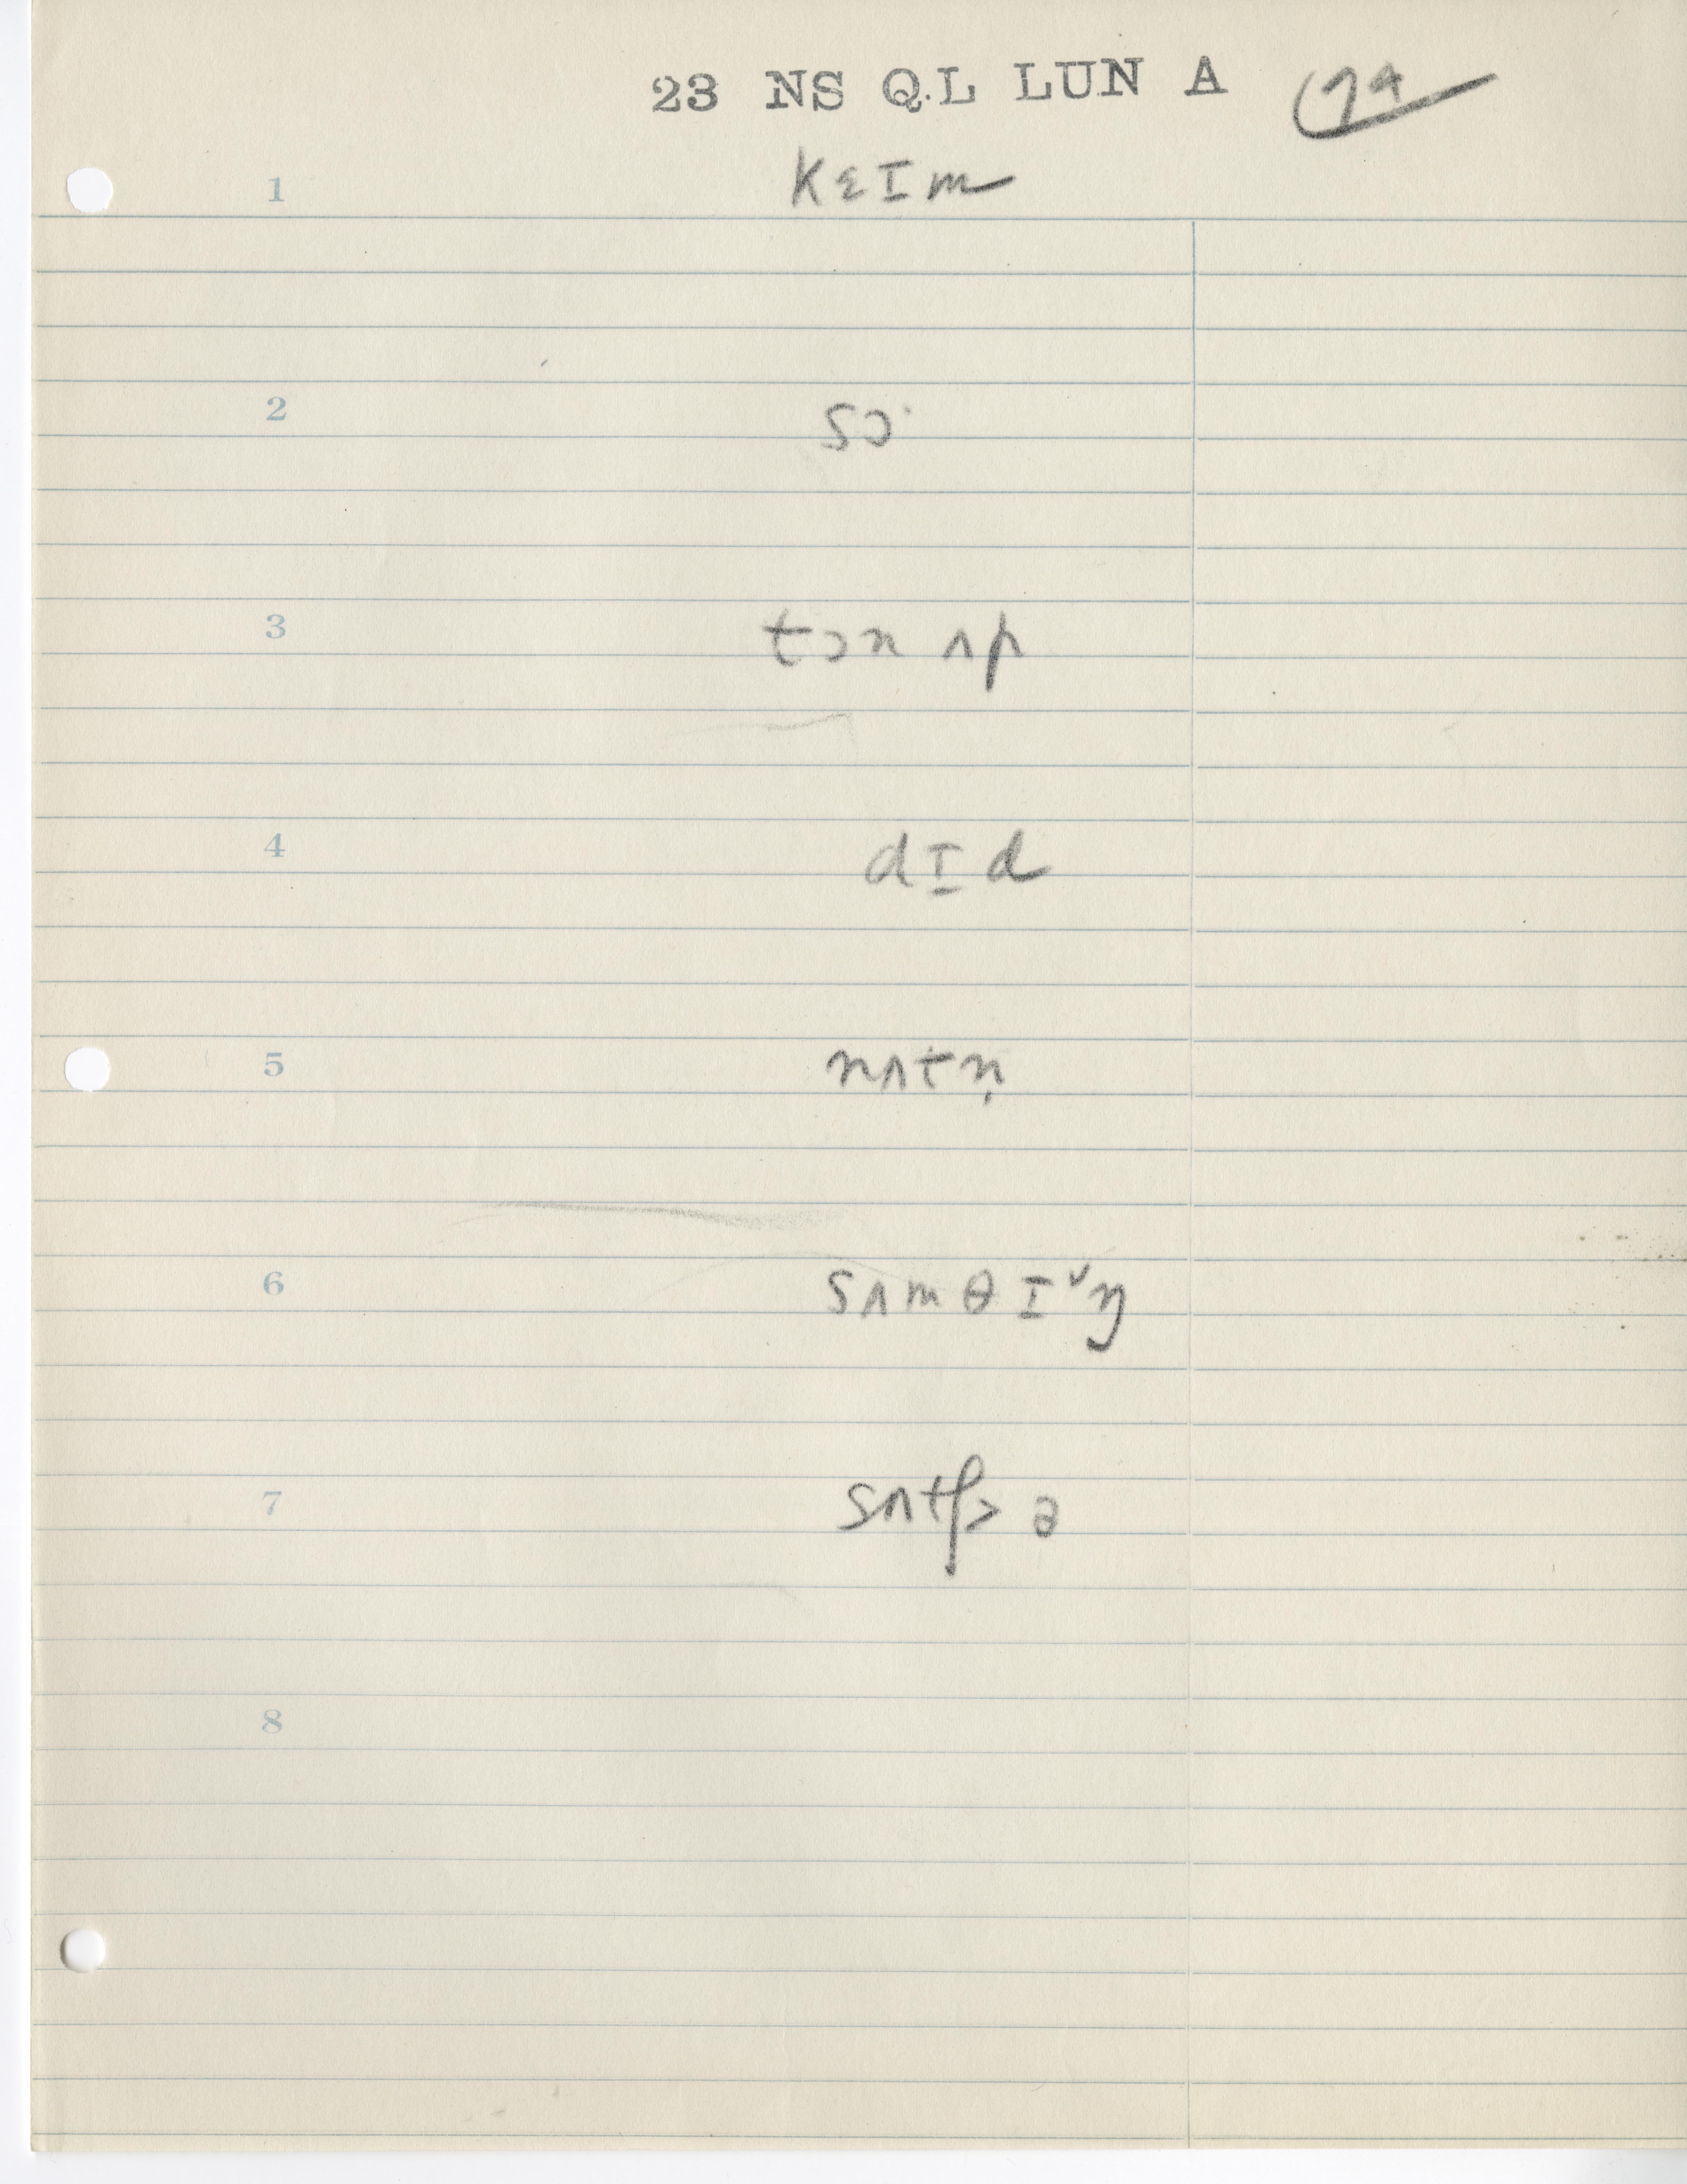 23 NS QL LUN A 74
1 kɛɪm
2 sɔ·
3 tɔn ʌp
4 dɪd
5 nʌtn̩
6 sʌmθɪ˅ŋ
7 sʌtʃ> ə
8